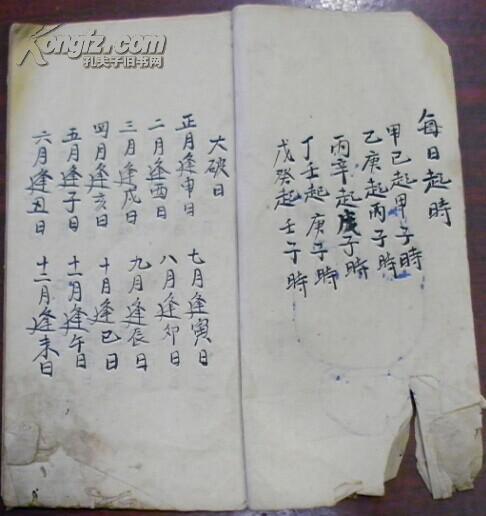 Kongfz.com
孔夫子旧书网
每日起時
甲己起甲子時
乙庚起丙子時
丙辛起戊子時
丁壬起庚子時
戊癸起壬子時
大破日
正月逢申日
二月逢酉日
三月逢戌日
四月逢亥日
五月逢子日
六月逢丑日
七月逢寅日
八月逢卯日
九月逢辰日
十月逢巳日
十一月逢午日
十二月逢未日